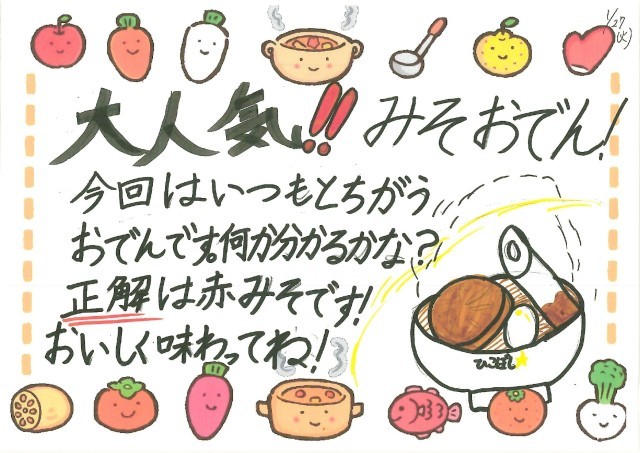 1/27
(火)
大人気!! みそおでん!
今回はいつもとちがう
おでんです。何か分かるかな?
正解は赤みそです!
おいしく味わってね!
ひこぼし